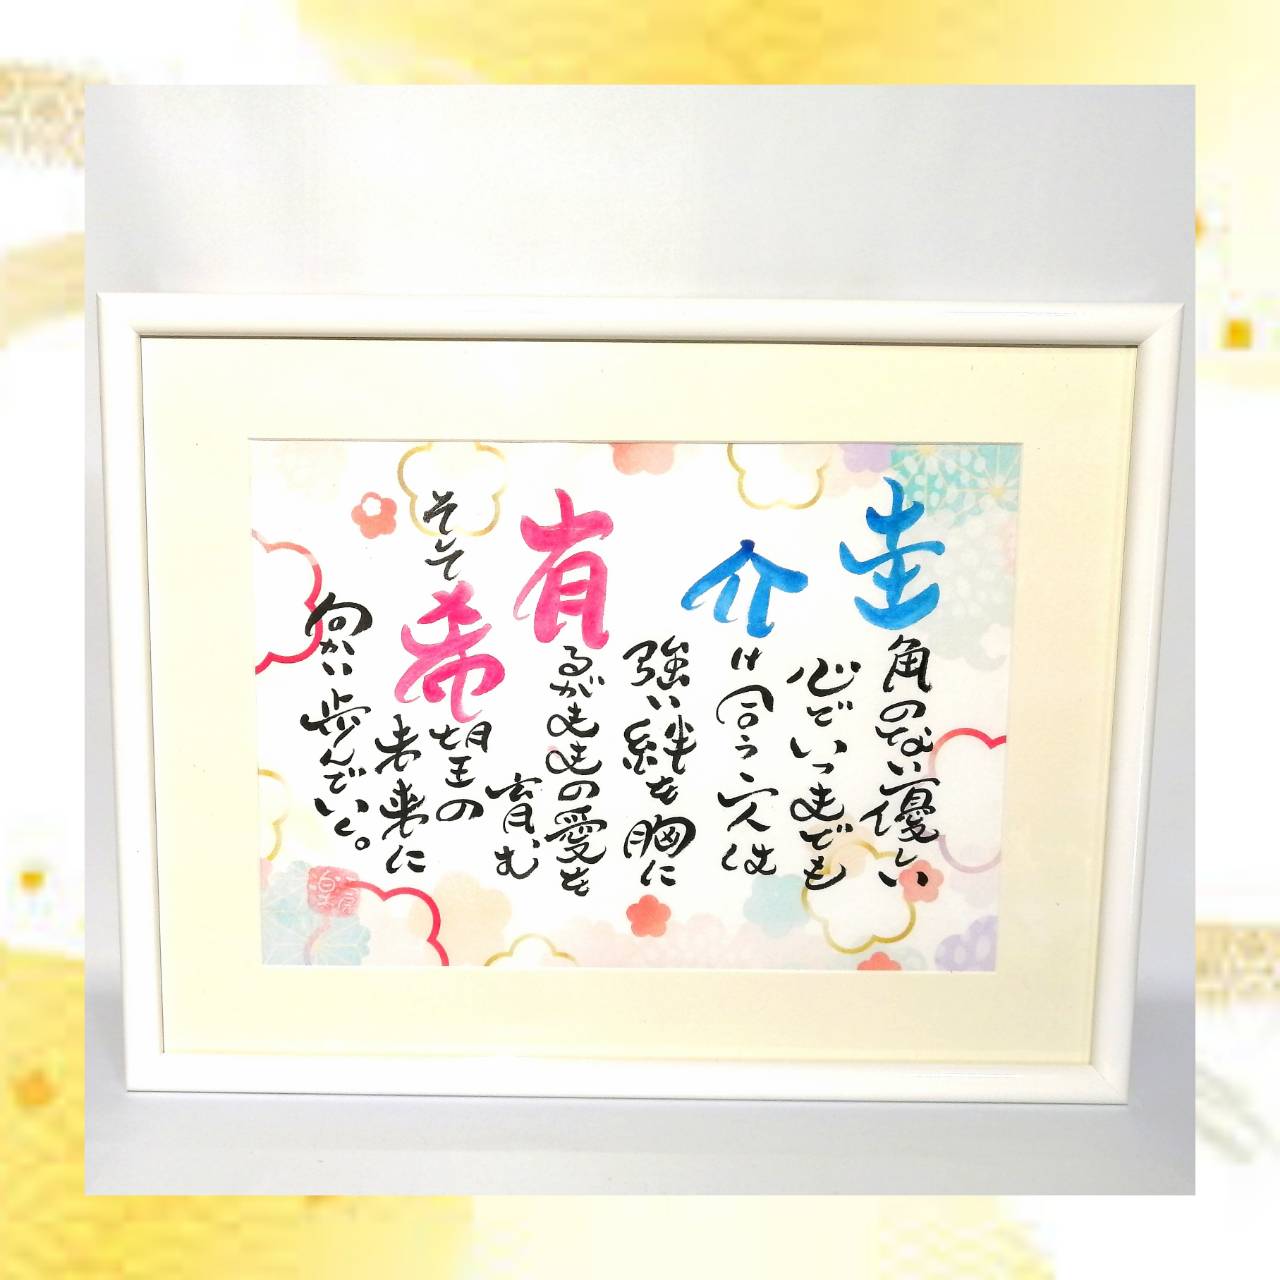 圭角のない優しい
心でいつまでも
介け合う二人は
強い絆を胸に
有るがままの愛を
育む
そして希望の
未来に
向かい歩んでいく。